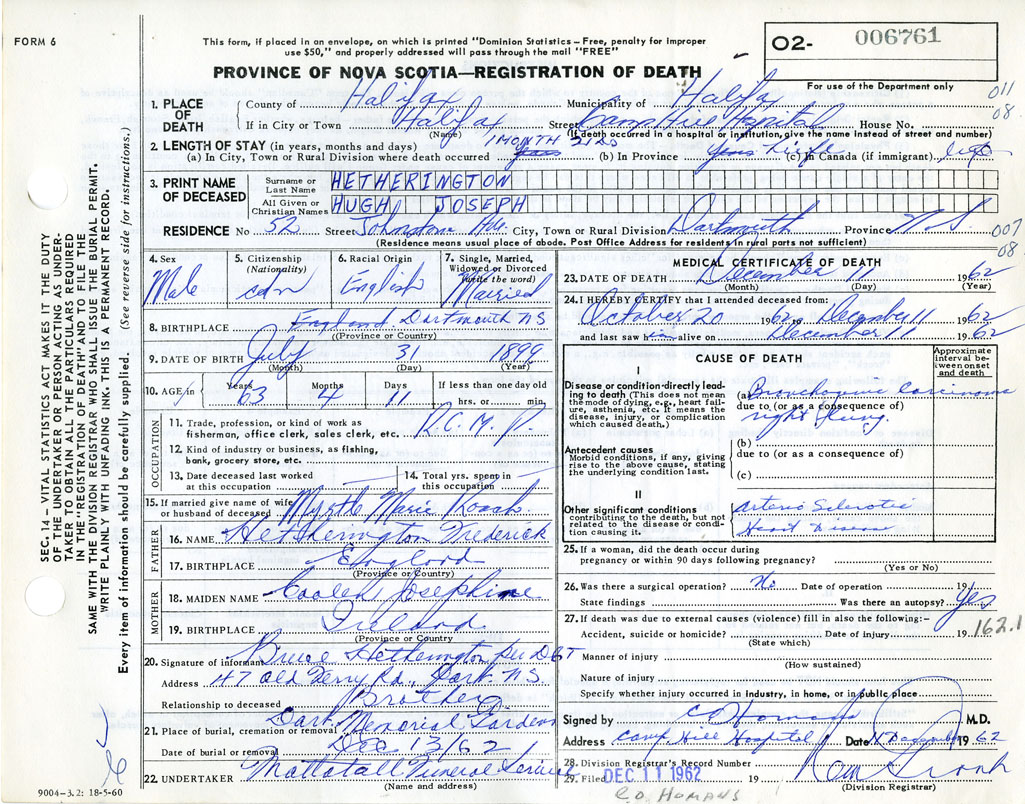 FORM 6
This form, if placed in an envelope, on which is printed "Dominion Statistics—Free, penalty for improper
use $50," and properly addressed will pass through the mail "FREE"
O2- 006761
PROVINCE OF NOVA SCOTIA—REGISTRATION OF DEATH
For use of the Department only
011
08.
1. PLACE OF DEATH
County of Halifax Municipality of Halifax
If in City or Town Halifax Street Camp Hill Hospital House No.
(Name) (If death occurred in a hospital or institution, give the name instead of street and number)
2. LENGTH OF STAY (in years, months and days)
(a) In City, Town or Rural Division where death occurred 1 MONTH 21 DS (b) In Province Life (c) In Canada (if immigrant) Life
3. PRINT NAME OF DECEASED
Surname or Last Name HETHERINGTON
All Given or Christian Names HUGH JOSEPH
RESIDENCE No 52 Street Johnstone Ave. City, Town or Rural Division Dartmouth Province N.S.
(Residence means usual place of abode. Post Office Address for residents in rural parts not sufficient)
007
08
4. Sex Male
5. Citizenship (Nationality) cdn
6. Racial Origin English
7. Single, Married, Widowed or Divorced (write the word) Married
8. BIRTHPLACE England Dartmouth NS
(Province or Country)
9. DATE OF BIRTH July 31 1899
(Month) (Day) (Year)
10. AGE Years 63 Months 4 Days 11 If less than one day old
hrs. or min.
OCCUPATION
11. Trade, profession, or kind of work as
fisherman, office clerk, sales clerk, etc. R.C.M.P.
12. Kind of industry or business, as fishing,
bank, grocery store, etc.
13. Date deceased last worked
at this occupation
14. Total yrs. spent in
this occupation
15. If married give name of wife
or husband of deceased Myrtle Marie Roach
FATHER
16. NAME Hetherington Frederick
17. BIRTHPLACE England
(Province or Country)
MOTHER
18. MAIDEN NAME Josephine
19. BIRTHPLACE Ireland
(Province or Country)
20. Signature of informant Bruce Hetherington per
Address 47 Old Ferry Rd., Dart N.S.
Relationship to deceased Brother
21. Place of burial, cremation or removal Dart. Memorial Gardens
Date of burial or removal Dec 13/62
22. UNDERTAKER Mattatall Funeral Service
(Name and address)
9004-3.2: 18-5-60
SEC. 14 - VITAL STATISTICS ACT MAKES IT THE DUTY
OF THE UNDERTAKER OR PERSON ACTING AS UNDER-
TAKER TO OBTAIN ALL THE PARTICULARS REQUIRED
IN THE "REGISTRATION OF DEATH" AND TO FILE THE
SAME WITH THE DIVISION REGISTRAR WHO SHALL ISSUE THE BURIAL PERMIT.
WRITE PLAINLY WITH UNFADING INK. THIS IS A PERMANENT RECORD.
Every item of information should be carefully supplied. (See reverse side for instructions.)
MEDICAL CERTIFICATE OF DEATH
23. DATE OF DEATH December 11 1962
(Month) (Day) (Year)
24. I HEREBY CERTIFY that I attended deceased from:
October 20 1962 to December 11 1962
and last saw him alive on December 11 1962
CAUSE OF DEATH
Approximate interval between onset and death
I
Disease or condition directly leading to death (This does not mean the mode of dying, e.g., heart failure, asthenia, etc. It means the disease, injury, or complication which caused death.)
(a) Bronchogenic Carcinoma
due to (or as a consequence of)
right lung.
Antecedent causes
Morbid conditions, if any, giving rise to the above cause, stating the underlying condition last.
(b)
due to (or as a consequence of)
(c)
II
Other significant conditions
contributing to the death, but not related to the disease or condition causing it.
Arterio Sclerotic
Heart Disease
25. If a woman, did the death occur during
pregnancy or within 90 days following pregnancy?
(Yes or No)
26. Was there a surgical operation? No Date of operation 19
State findings Was there an autopsy? Yes
27. If death was due to external causes (violence) fill in also the following:—
Accident, suicide or homicide? Date of injury 19
(State which)
162.1
Manner of injury
(How sustained)
Nature of injury
Specify whether injury occurred in industry, in home, or in public place
Signed by C D Homans M.D.
Address Camp Hill Hospital Date 11 December 1962
28. Division Registrar's Record Number
29. Filed DEC 11 1962 19
(Division Registrar)
C.D. HOMANS